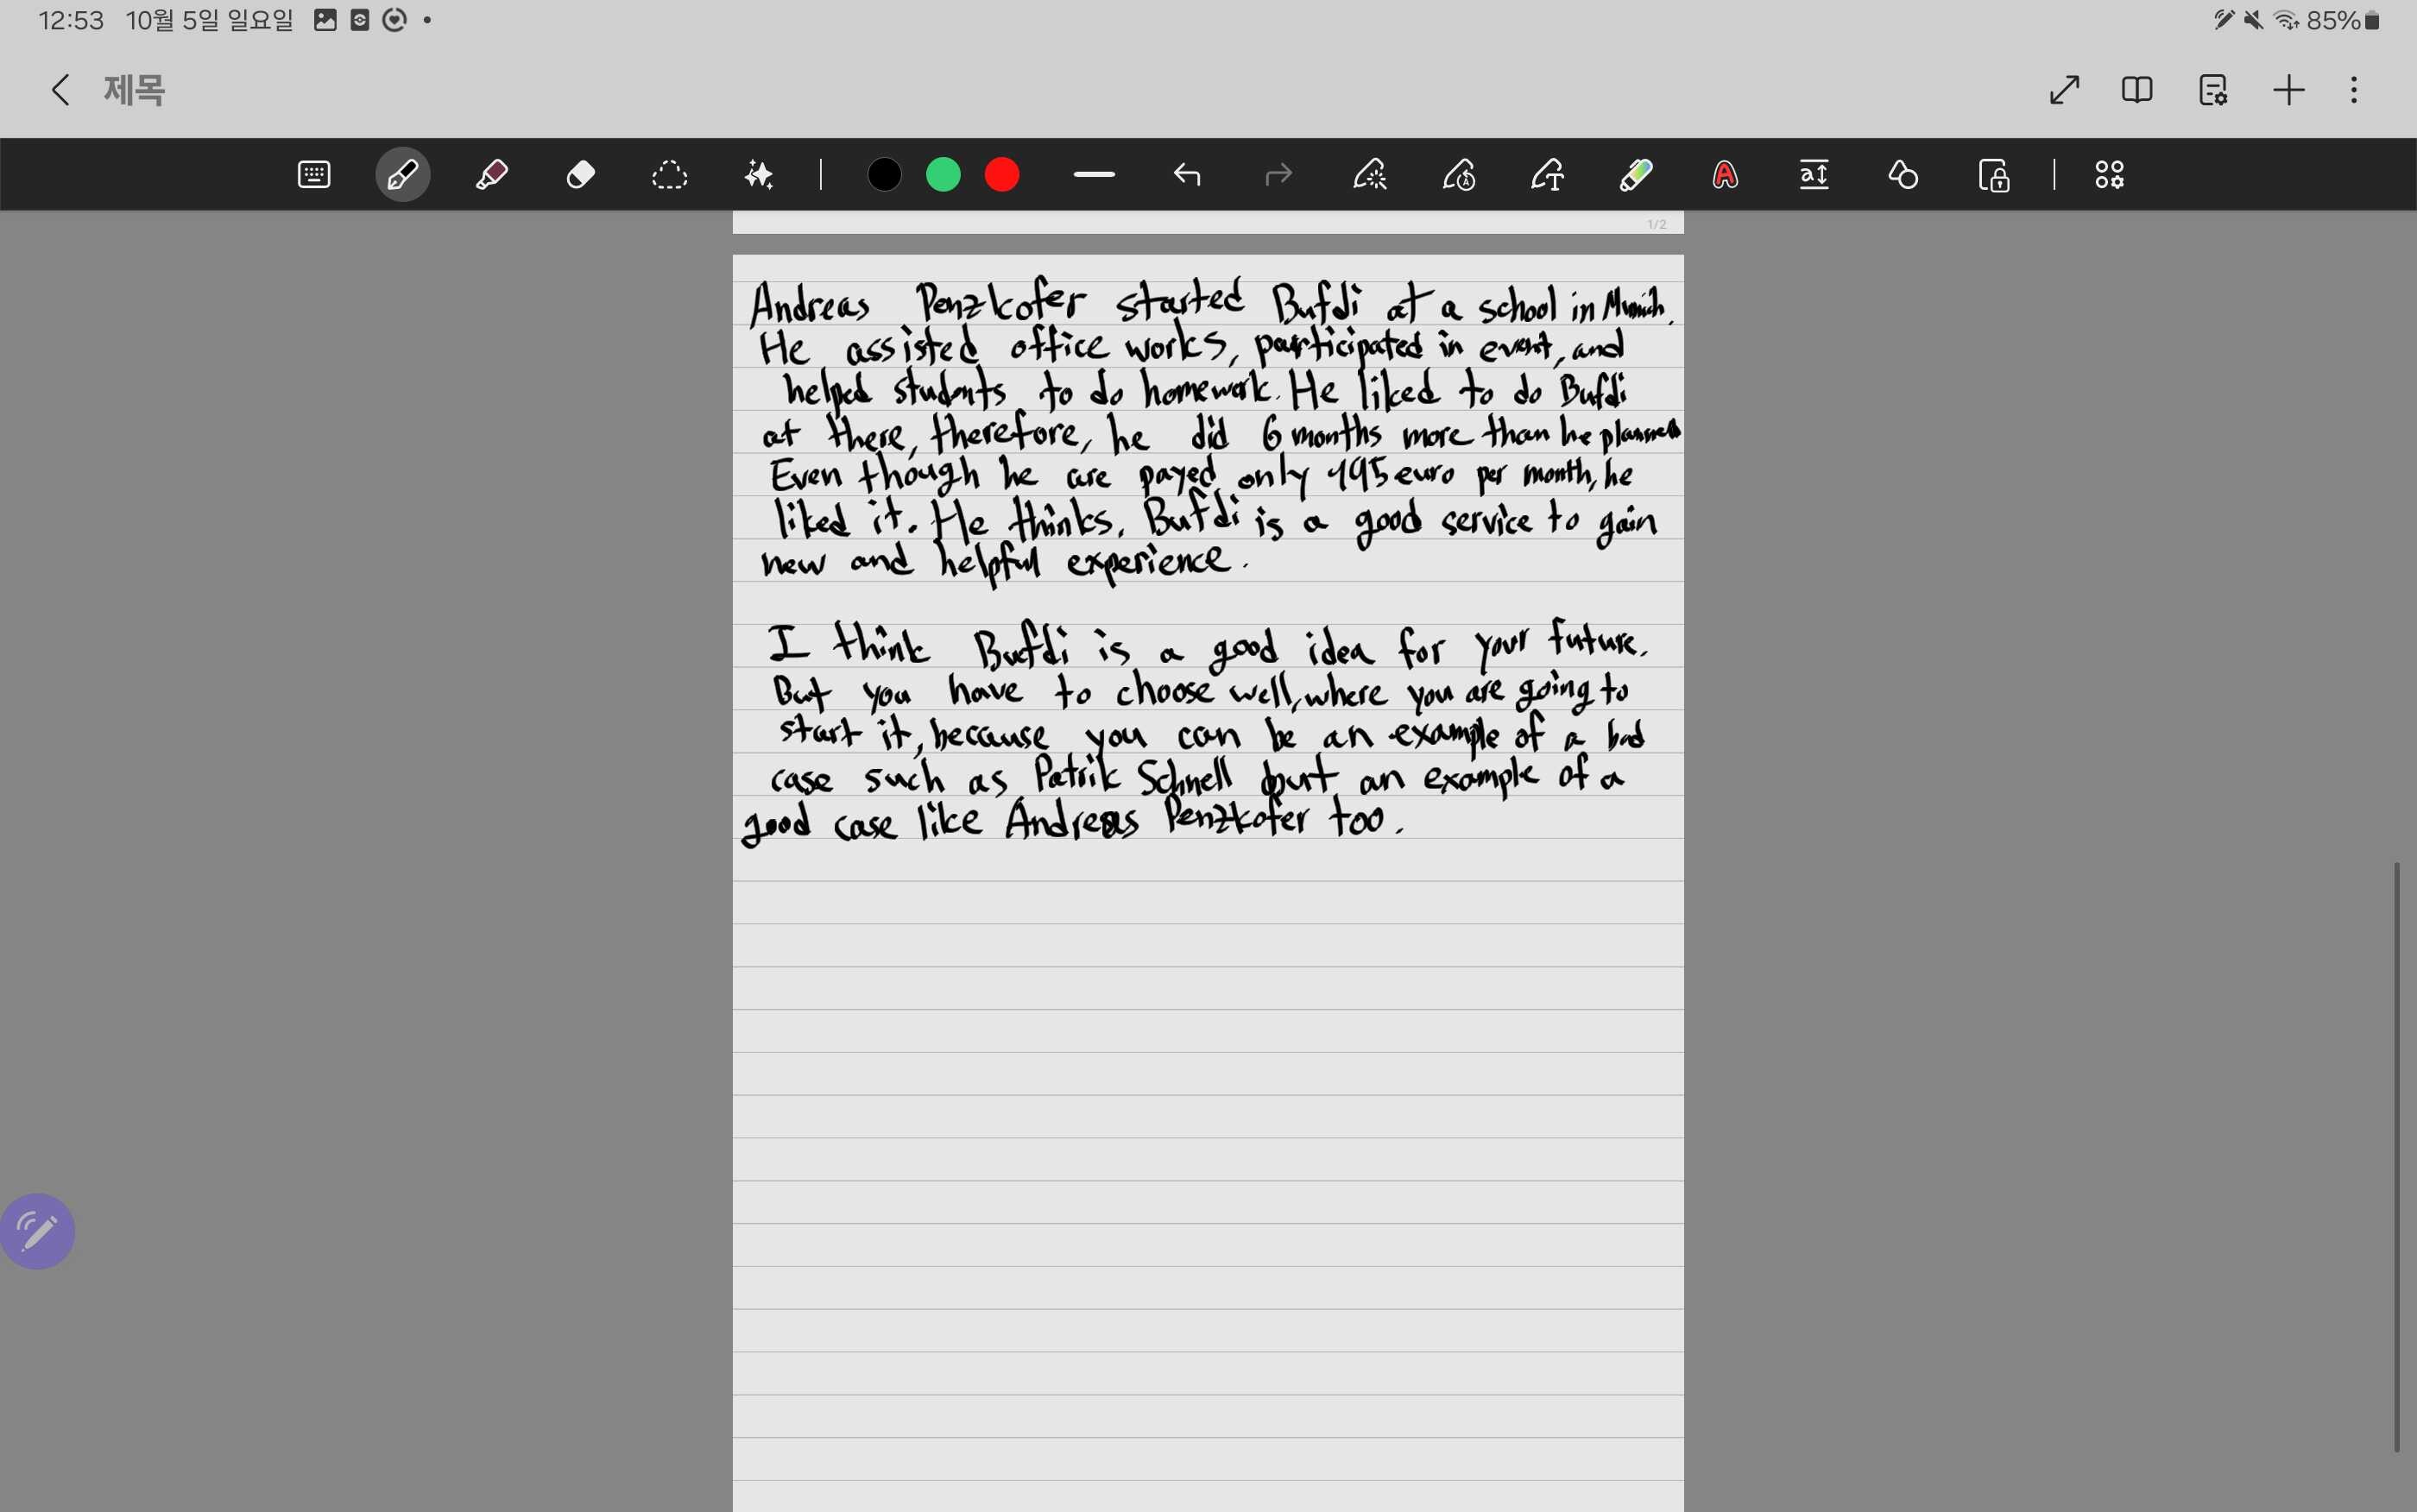 12:53 10월 5일 일요일 85%
제목
1/2
Andreas Penzkofer started Bufdi at a school in Munich.
He assisted office works, participated in event, and
helped students to do homework. He liked to do Bufdi
at there, therefore, he did 6 months more than he planned
Even though he are payed only 495 euro per month, he
liked it. He thinks, Bufdi is a good service to gain
new and helpful experience.
I think Bufdi is a good idea for your future.
But you have to choose well, where you are going to
start it, because you can be an example of a bad
case such as Patrik Schnell but an example of a
good case like Andreas Penzkofer too.